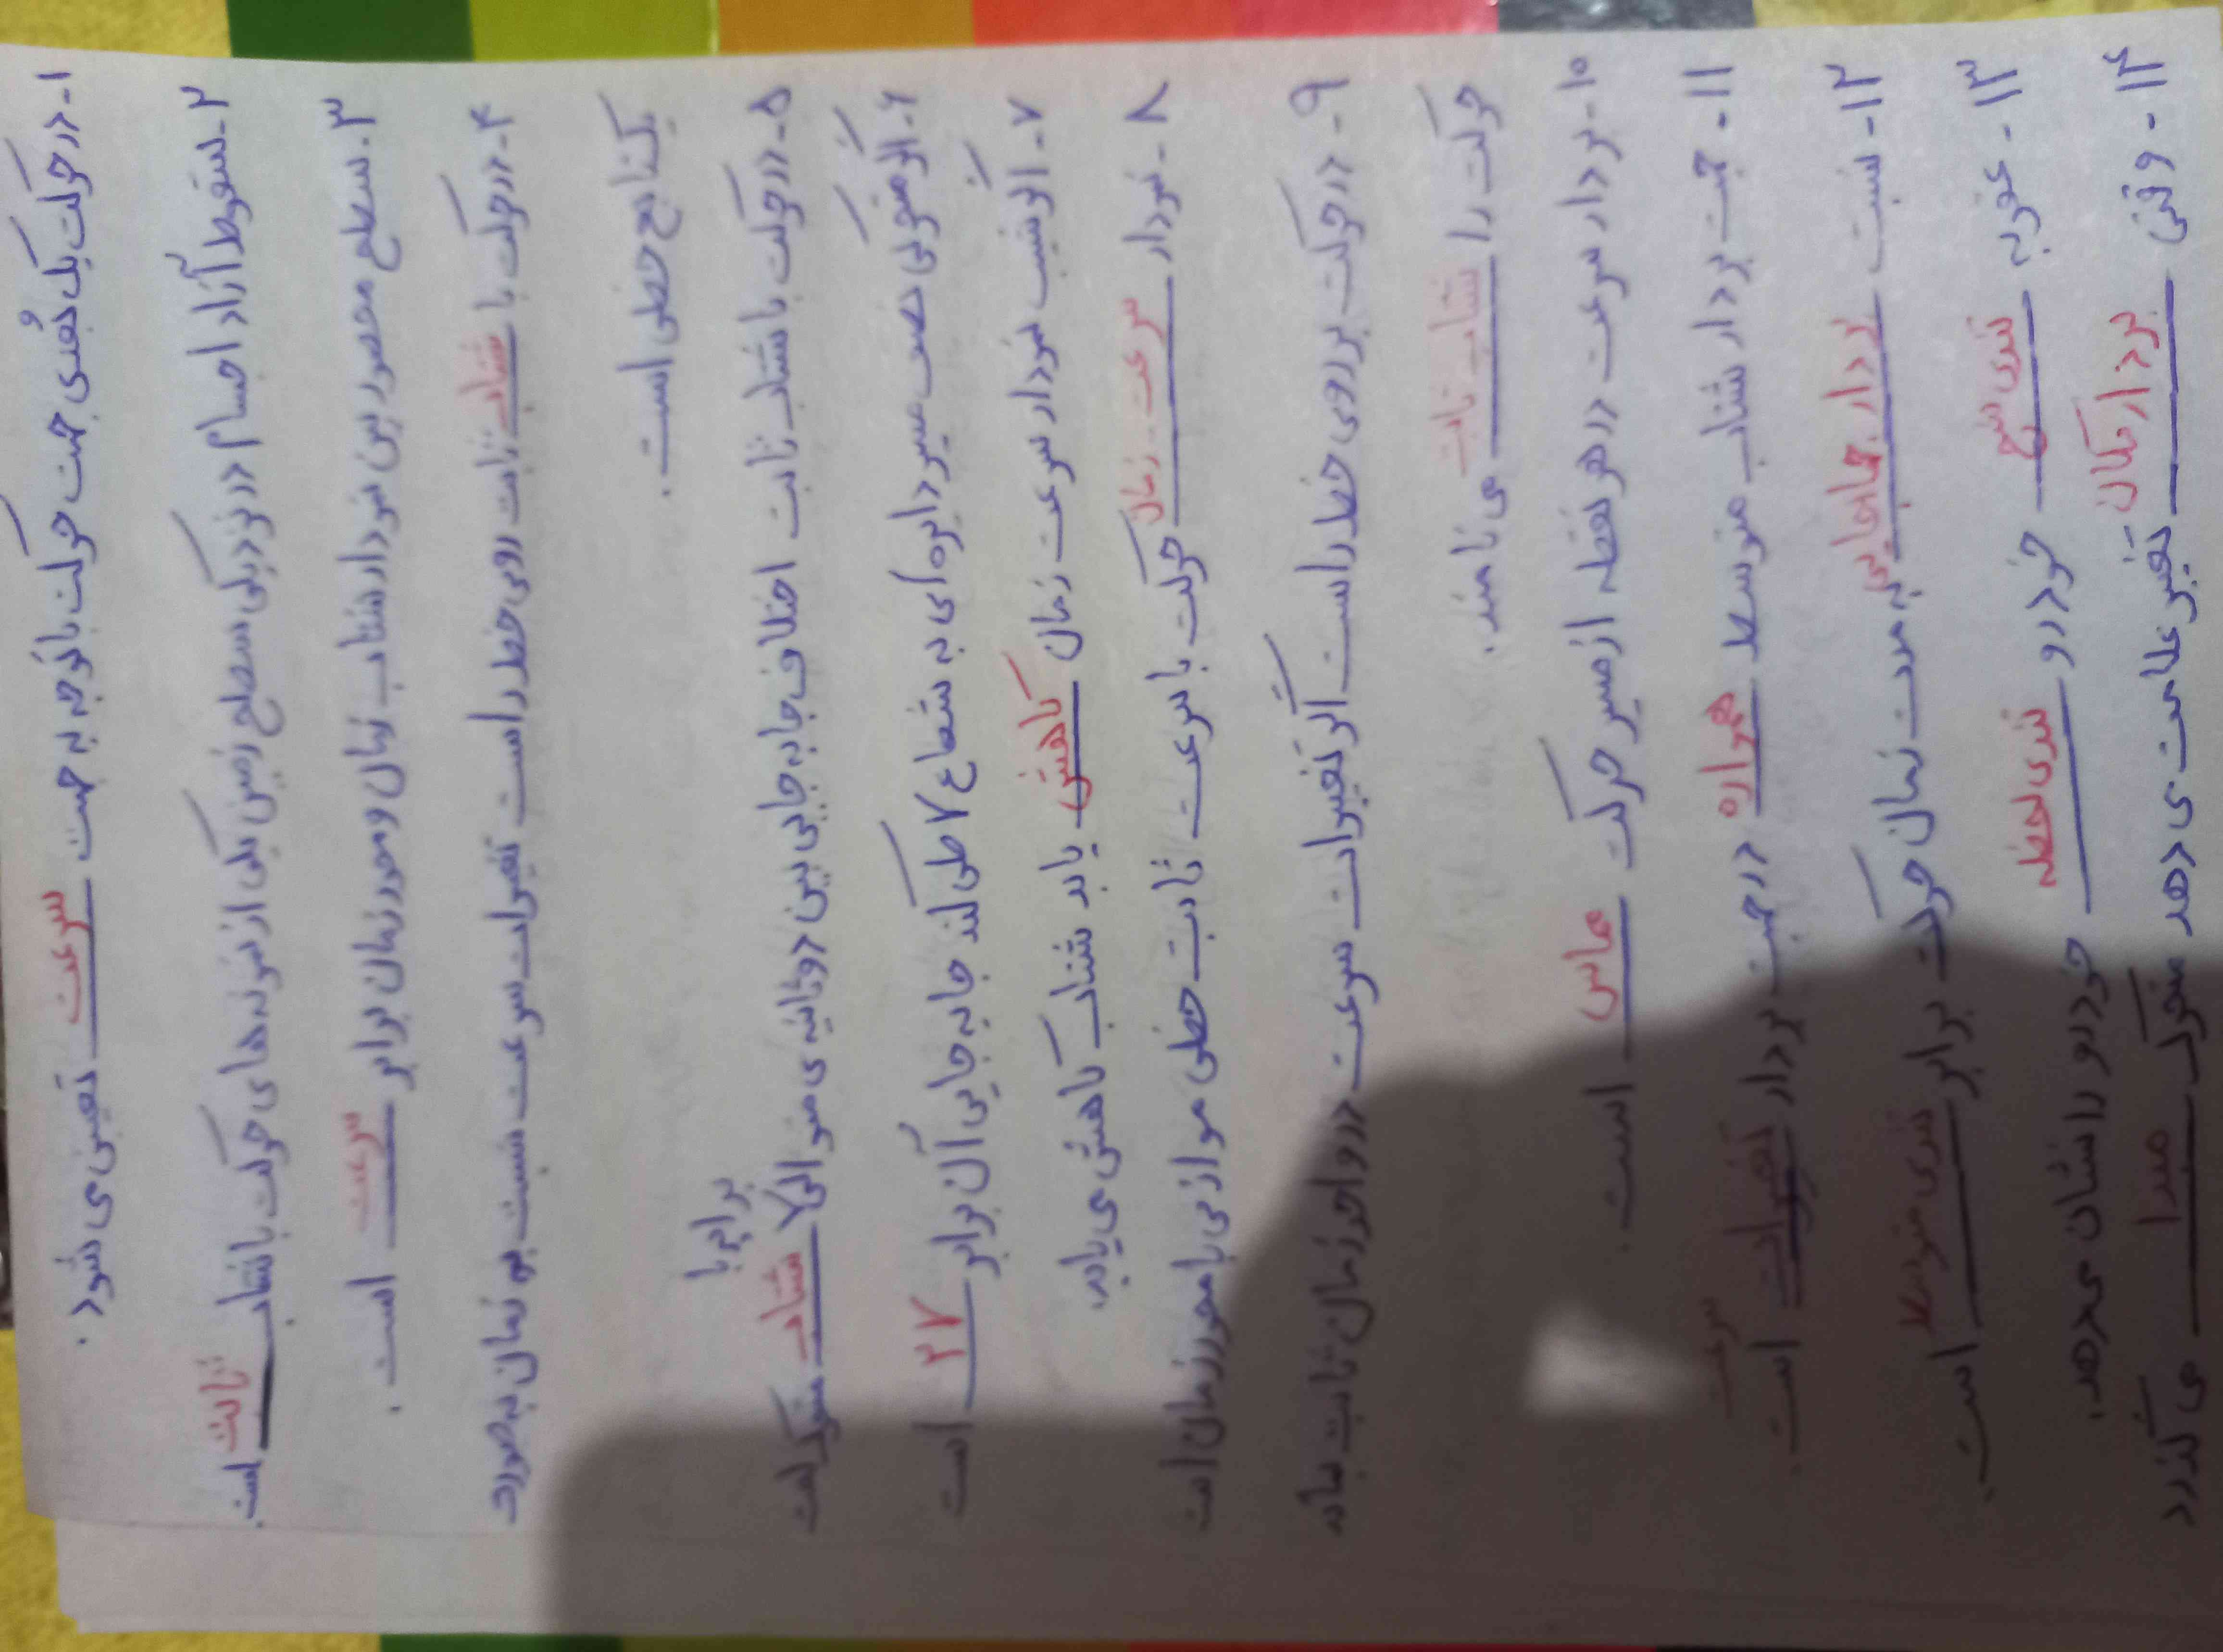 ۱- در حرکت یک بُعدی جهت حرکت با توجه به جهت سرعت تعیین می شود.
۲- سقوط آزاد اجسام در نزدیکی سطح زمین یکی از نمونه های حرکت با شتاب ثابت است.
۳- سطح محصور بین نمودار شتاب زمان و محور زمان برابر سرعت است.
۴- در حرکت با شتاب ثابت روی خط راست تغییرات سرعت نسبت به زمان به صورت
یک تابع خطی است.
۵- در حرکت با شتاب ثابت اختلاف جابه جایی بین دو ثانیه ی متوالی برابر با شتاب متحرک است
۶- اگر متحرکی نصف مسیر دایره ای به شعاع ۷ طی کند جابه جایی آن برابر ۲۷ است
۷- اگر شیب نمودار سرعت زمان کاهش یابد شتاب کاهش می یابد.
۸- نمودار سرعت - زمان حرکت با سرعت ثابت خطی موازی با محور زمان است
۹- در حرکت بر روی خط راست اگر تغییرات سرعت در واحد زمان ثابت بماند
حرکت را شتاب ثابت می نامند.
۱۰- بردار سرعت در هر نقطه از مسیر حرکت مماس است.
۱۱- جهت بردار شتاب متوسط همواره در جهت بردار تغییرات سرعت است.
۱۲- نسبت بردار جابجایی به مدت زمان حرکت برابر تندی متوسط است.
۱۳- عقربه تندی سنج خودرو تندی لحظه خودرو را نشان می دهد.
۱۴- وقتی بردار مکان تغییر علامت می دهد متحرک از مبدا می گذرد